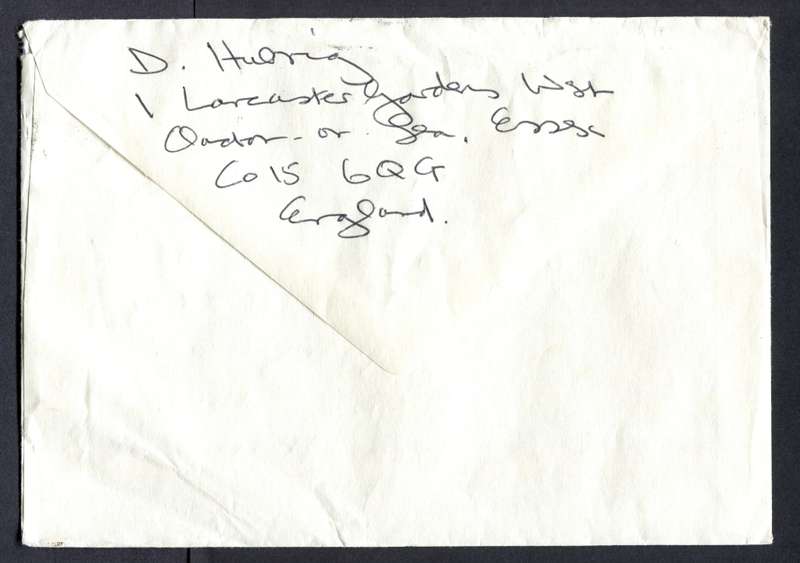 D.
1 Lancaster Gardens West
Clacton-on-Sea, Essex
Co15 6QG
England.